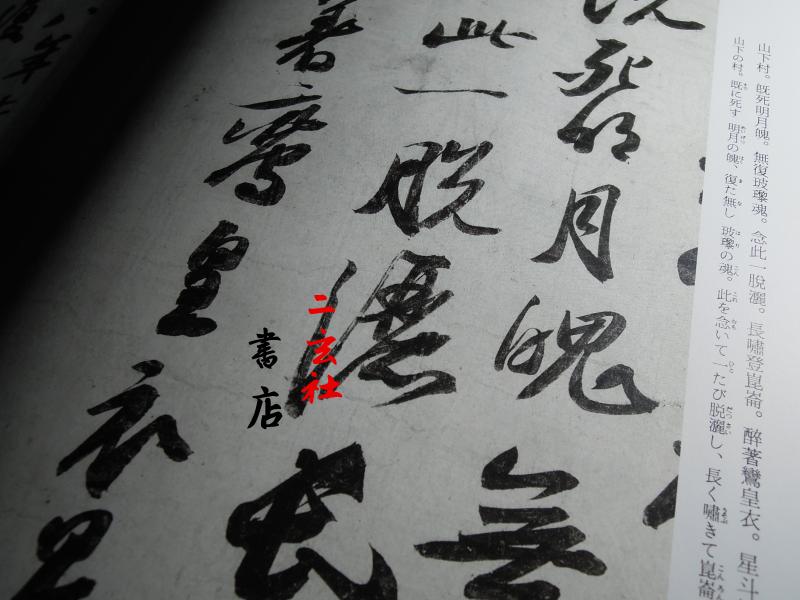 山下村。既死明月魄。無復玻瓈魂。念此一脫灑。長嘯登崑崙。醉著鸞皇衣。星斗
山下の村。既に死す 明月の魄、復た無し 玻瓈の魂。此を念いて一たび脱灑し、長く嘯きて崑崙
既死明月魄無
此一脫灑長
著鸞皇衣星
二玄社
書店